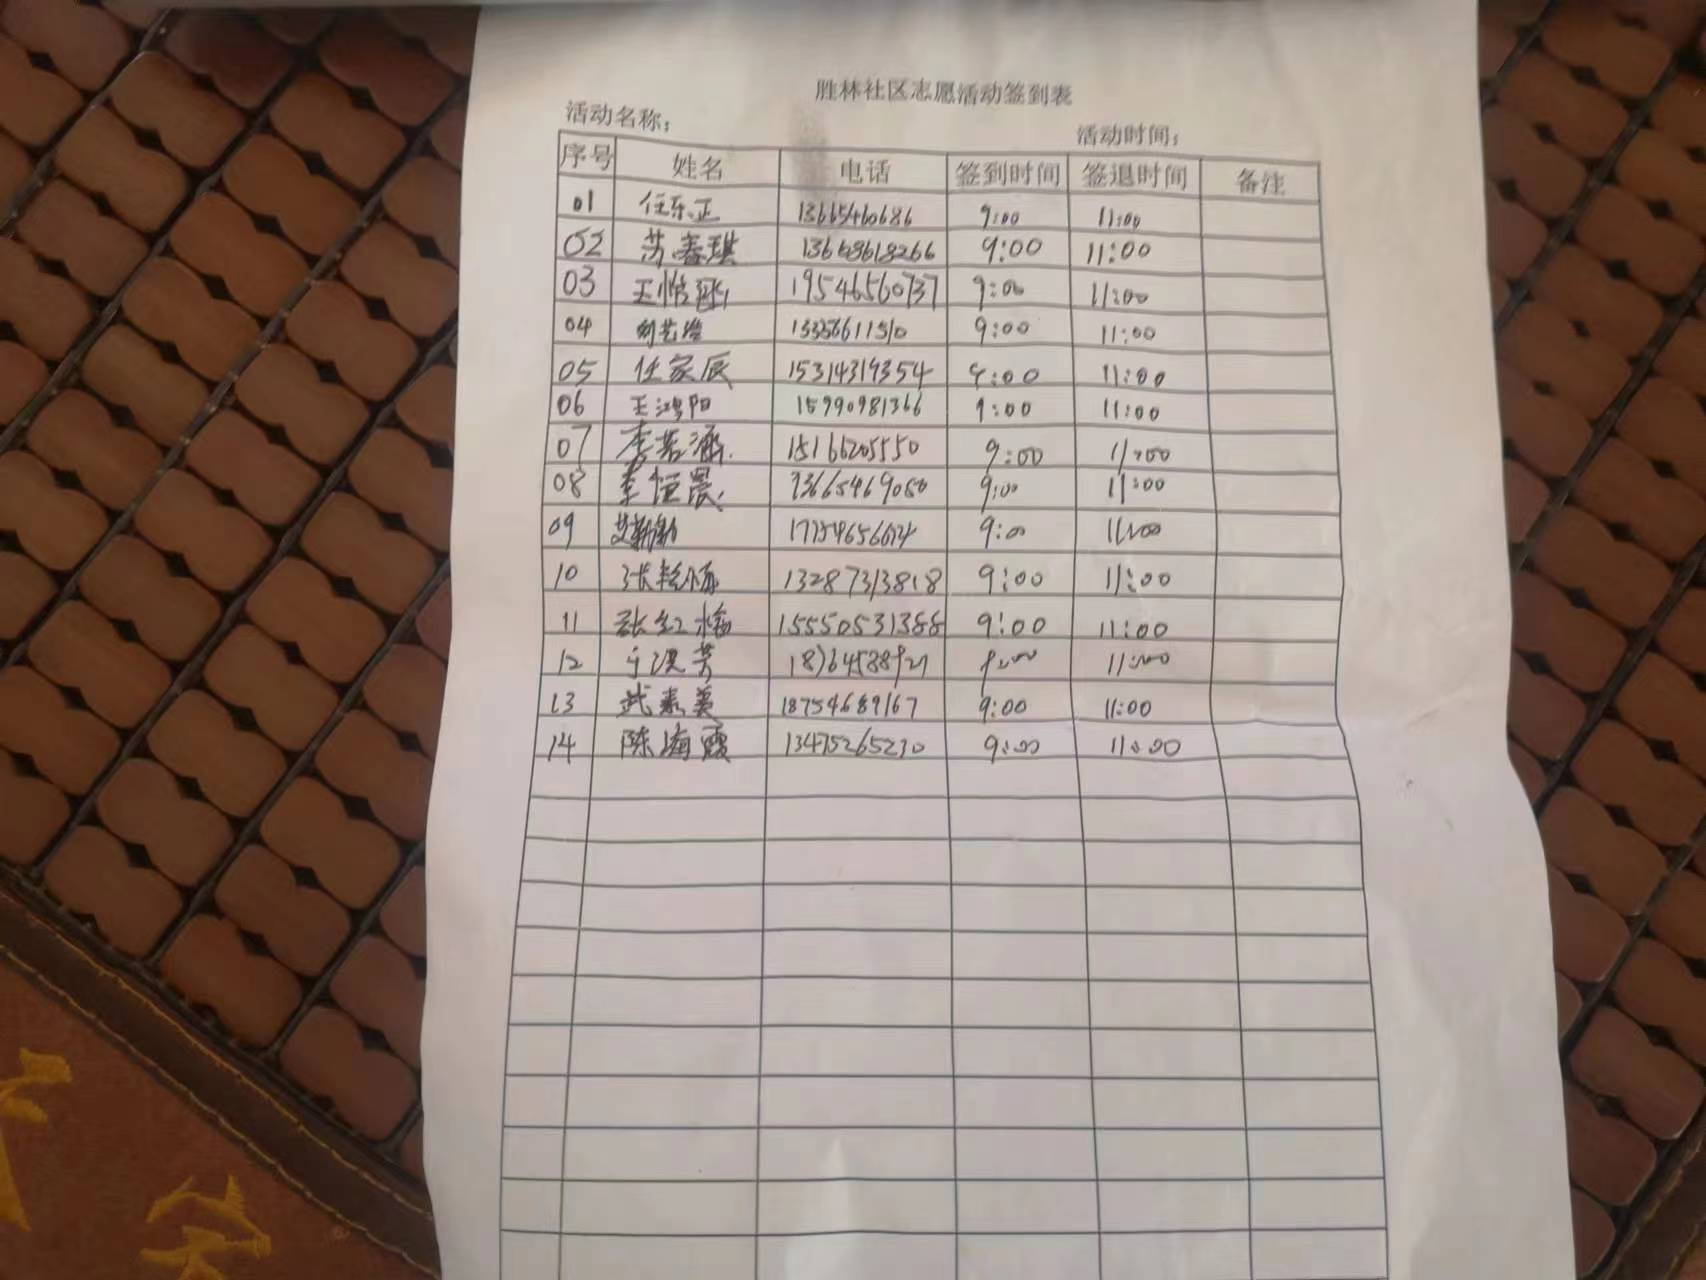 胜林社区志愿活动签到表
活动名称：
活动时间：
序号 姓名 电话 签到时间 签退时间 备注
01 任乐正 13665460686 9:00 11:00
02 苏春琪 13658618266 9:00 11:00
03 19546560737 9:00 11:00
04 9:00 11:00
05 任家辰 15314319354 9:00 11:00
06 王鸿阳 15990981366 9:00 11:00
07 李若涵 15166205550 9:00 11:00
08 李恒晨 13665469080 9:00 11:00
09 艾勤勤 9:00 11:00
10 13287313818 9:00 11:00
11 张红梅 15550531388 9:00 11:00
12 于洪芳 9:00 11:00
13 武素美 18754689167 9:00 11:00
14 陈海霞 13475265230 9:00 11:00